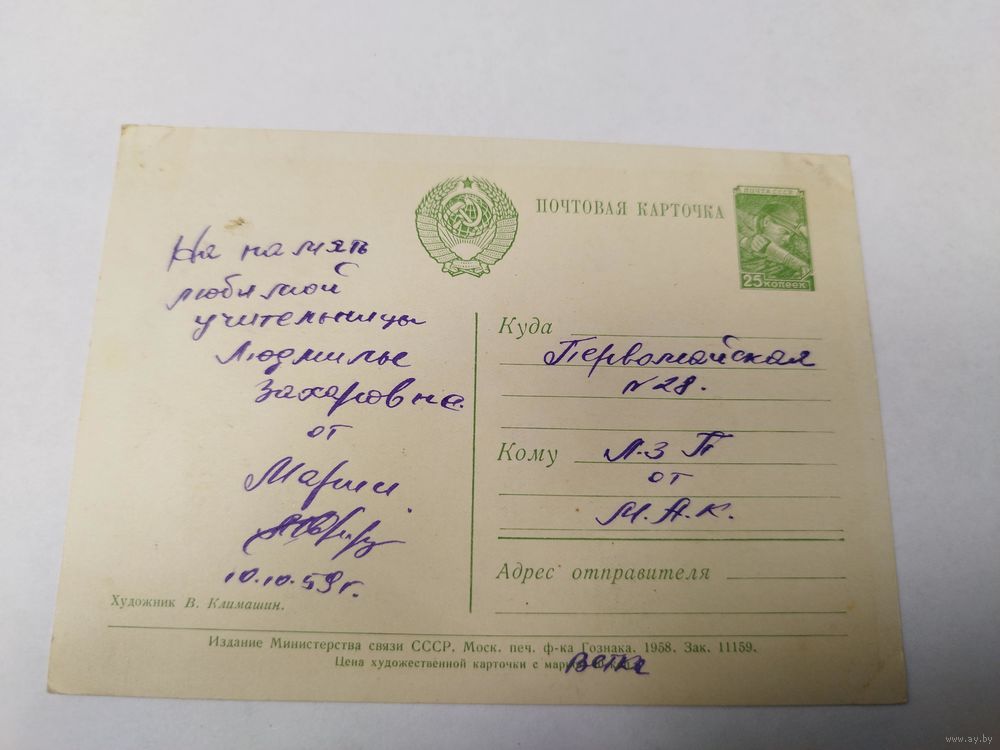 ПОЧТОВАЯ КАРТОЧКА
ПОЧТА СССР
25 КОПЕЕК
На память
любимой
учительницы
Людмилы
Захаровна
от
Марии
10.10.59 г.
Куда
Первомайская
N 28.
Кому Л.З П
от
М.А.К.
Адрес отправителя
Художник В. Климашин.
Издание Министерства связи СССР. Моск. печ. ф-ка Гознака. 1958. Зак. 11159.
Цена художественной карточки с
Ветка
www.ay.by